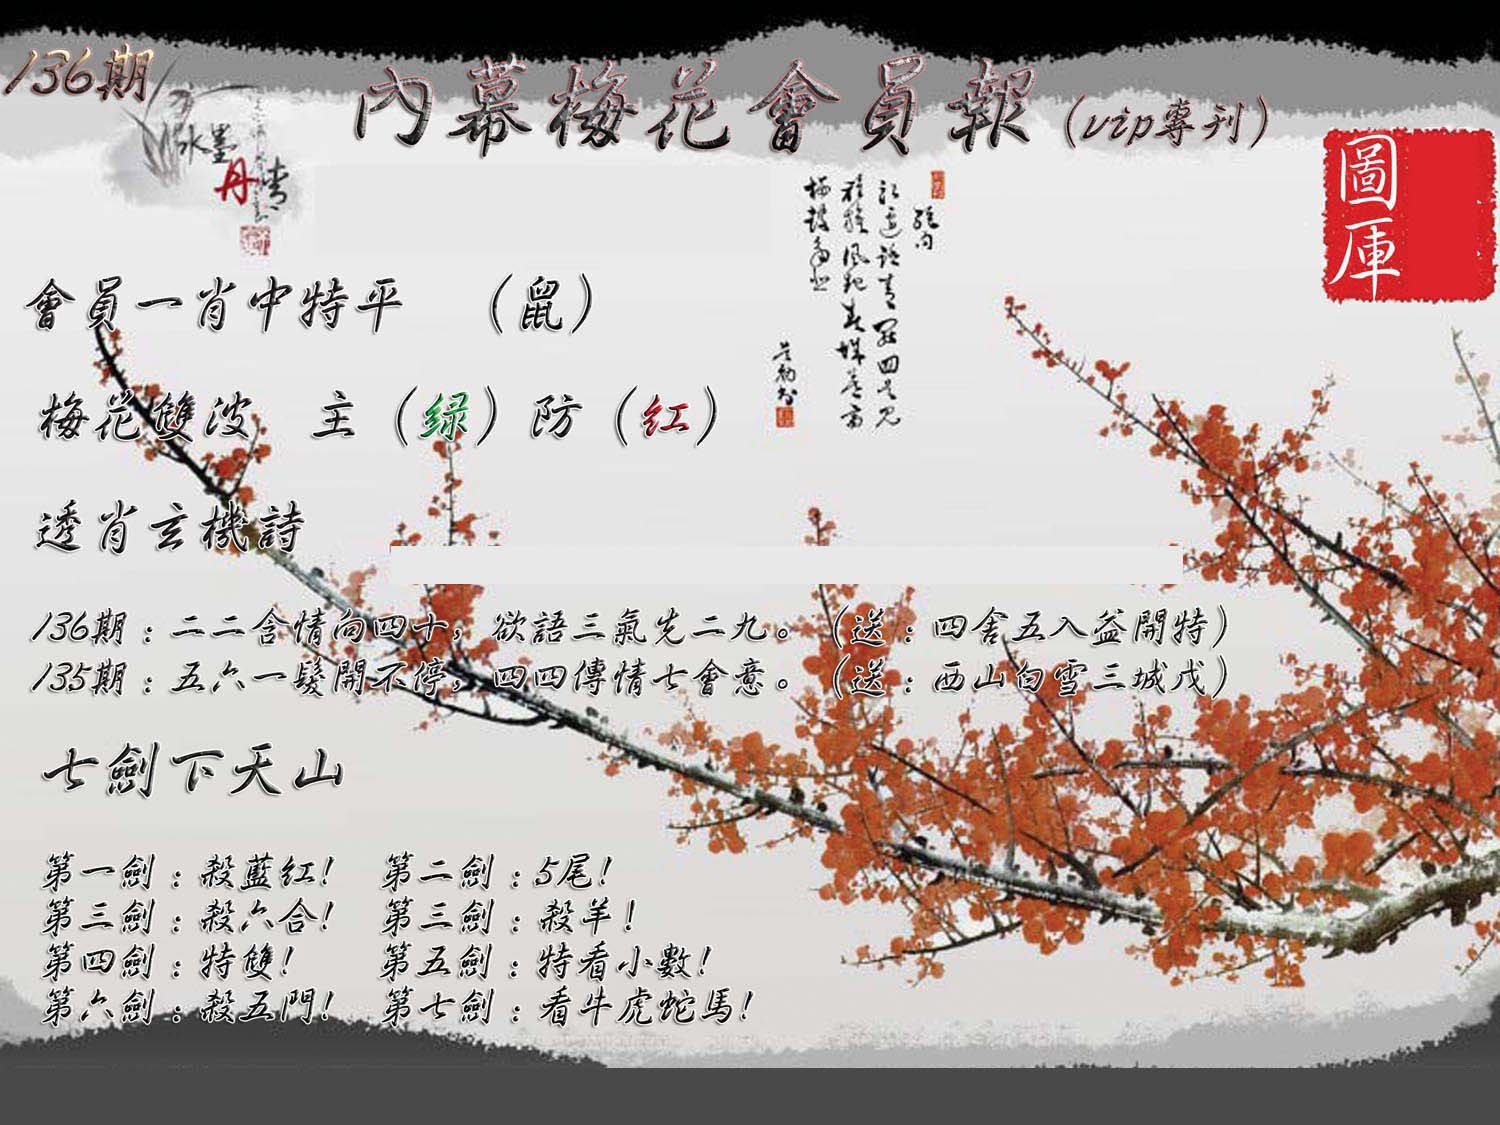 136期
內幕梅花會員報(vip專刊)
水墨
丹青
圖
庫
會員一肖中特平 (鼠)
梅花雙波 主(绿)防(红)
透肖玄機詩
136期:二二含情向四十,欲語三氣先二九。(送:四舍五入盆開特)
135期:五六一髮開不停,四四傳情七會意。(送:西山白雪三城戊)
七劍下天山
第一劍:殺藍红! 第二劍:5尾!
第三劍:殺六合! 第三劍:殺羊!
第四劍:特雙! 第五劍:特看小數!
第六劍:殺五門! 第七劍:看牛虎蛇馬!